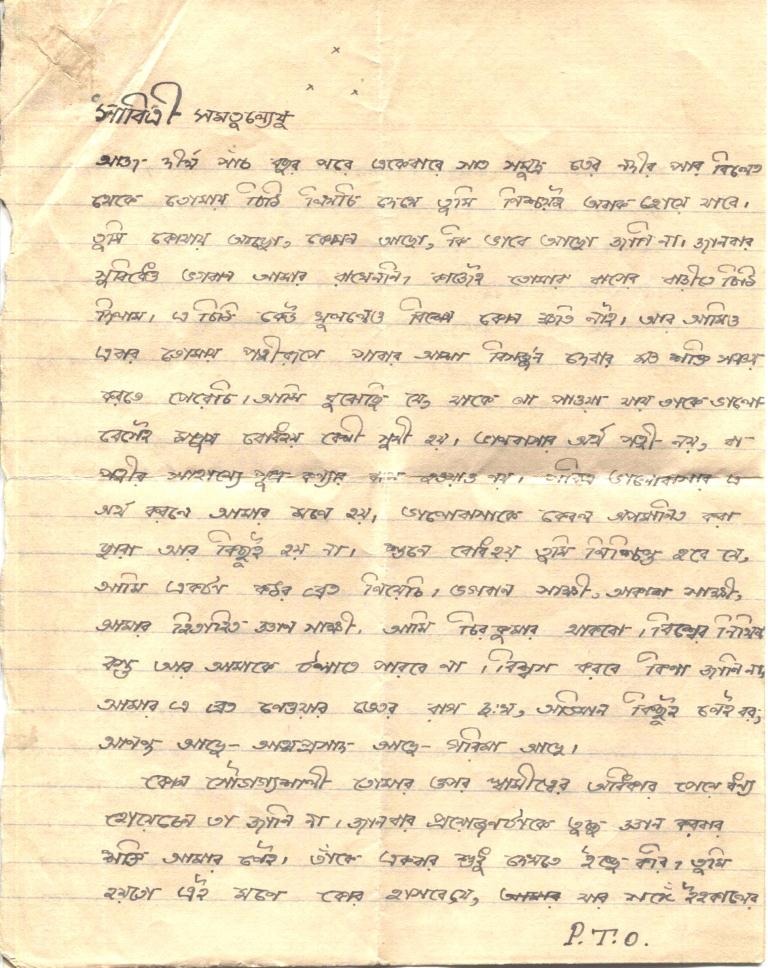 সাবিত্রী সমতুল্যেষু
আজ দীর্ঘ পাঁচ বছর পরে একেবারে সাত সমুদ্র তের নদীর পার বিলেত
থেকে তোমায় চিঠি লিখচি দেখে তুমি নিশ্চয়ই অবাক হোয়ে যাবে।
তুমি কোথায় আছো, কেমন আছো, কি ভাবে আছো জানি না। জানবার
সুবিধেও ভগবান আমার রাখেননি। কাজেই তোমার বাপের বাড়ীতে চিঠি
দিলাম। এ চিঠি কেউ খুললেও বিশেষ কোন ক্ষতি নাই। আর আমিও
এবার তোমায় পত্নীরূপে পাবার আশা বিসর্জ্জন দেবার মত শক্তি সঞ্চয়
করতে পেরেচি। আমি বুঝেছি যে, যাকে না পাওয়া যায় তাকে ভালো-
বেসেই মানুষ বোধহয় বেশী সুখী হয়। ভালবাসার অর্থ পত্নী নয়, বা
পত্নীর সাহায্যে পুত্র কন্যার হওয়াও নয়। পবিত্র ভালোবাসার এ
অর্থ করলে আমার মনে হয়, ভালোবাসাকে কেবল অপমানিত করা
ছাড়া আর কিছুই হয় না। শুনে বোধহয় তুমি নিশ্চিন্ত হবে যে,
আমি একটা কঠোর ব্রত নিয়েচি। ভগবান সাক্ষী, আকাশ সাক্ষী,
আমার হিতাহিত জ্ঞান সাক্ষী। আমি চির কুমার থাকবো। বিশ্বের নিখিল
বস্তু আর আমাকে টলাতে পারবে না। বিশ্বাস করবে কিনা জানি না,
আমার এ ব্রত নেওয়ার ভেতর রাগ দুঃখ, অভিমান কিছুই নেই বরং
আনন্দ আছে- আত্মপ্রসাদ আছে- গরিমা আছে।
কোন সৌভাগ্যশালী তোমার ওপর স্বামীত্বের অধিকার পেয়ে ধন্য
হোয়েচেন তা জানি না। জানবার প্রয়োজনটাকে তুচ্ছ জ্ঞান করবার
শক্তি আমার নেই। তাঁকে একবার শুধু দেখতে ইচ্ছে করি। তুমি
হয়তো এই মনে কোরে হাসবে যে, আমার যার সঙ্গে ইহকালের
P.T.O.